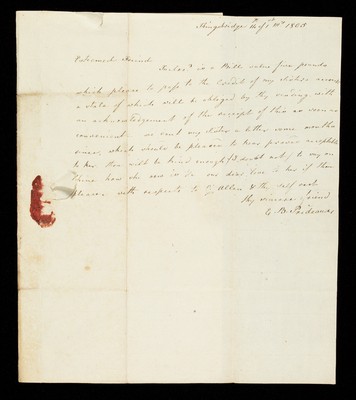 Kingsbridge 1st 1808
Esteemed Friend
Inclosd is a Bill value five pounds
which please to pass to the Credit of my Sisters account
a state of which will be obliged by thy sending with
an acknowledgement of the receipt of this as soon as
convenient we sent my Sister a letter some months
since, which should be pleased to hear proved acceptable
to her thou wilt be kind enough not to say any
thing how she now is our dear love to her if thou
please with respects to Allen & thy self each
thy sincere friend